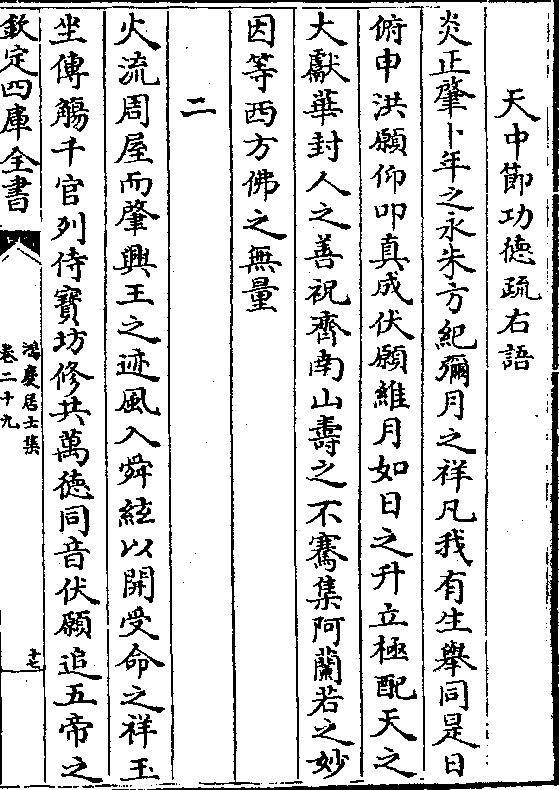 天中節功德疏右語
炎正肇卜年之永朱方紀彌月之祥凡我有生舉同是日
俯申洪願仰叩真成伏願維月如日之升立極配天之
大獻華封人之善祝齊南山壽之不騫集阿蘭若之妙
因等西方佛之無量
二
火流周屋而肇興王之迹風入舜絃以開受命之祥玉
坐傳觴千官列侍寶坊修共萬德同音伏願追五帝之
欽定四庫全書
鴻慶居士集
卷二十九
十七